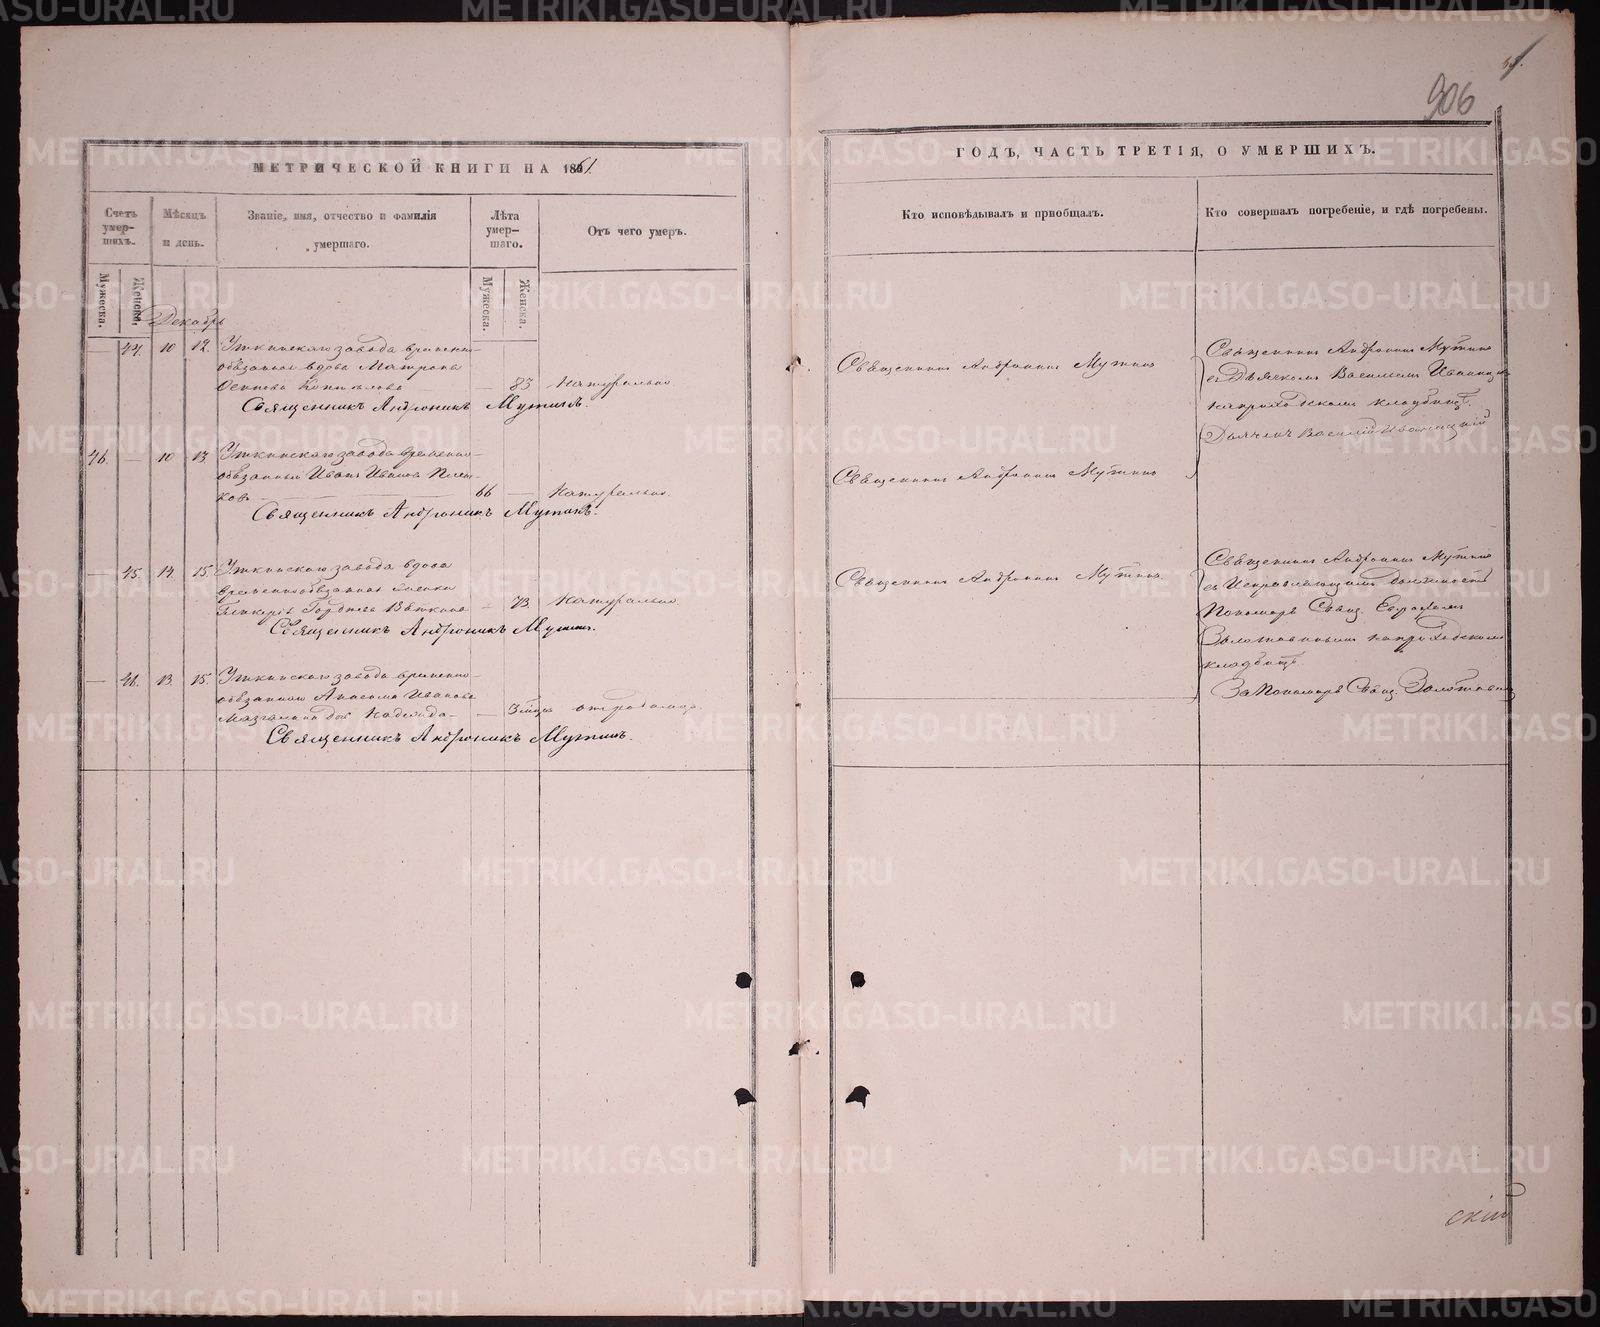 906
МЕТРИЧЕСКОЙ КНИГИ НА 1861
ГОДЪ, ЧАСТЬ ТРЕТІЯ, О УМЕРШИХЪ.
Счетъ умер-шихъ.
Мѣсяцъ и день.
Званіе, имя, отчество и фамилія умершаго.
Лѣта умер-шаго.
Отъ чего умеръ.
Кто исповѣдывалъ и пріобщалъ.
Кто совершалъ погребеніе, и гдѣ погребены.
Мужеска.
Женска.
Мужеска.
Женска.
Декабрь
— 44. 10 12. Уткинскаго завода временно-
обязанная вдова Матрона
Осипова — 83 Натурально.
Священникъ Андроникъ Мутинъ.
Священникъ Андроникъ Мутинъ
Священникъ Андроникъ Мутинъ
съ Дьячкомъ Василіемъ
на приходскомъ кладбищѣ.
Дьячекъ Василій
46. — 10 13 Уткинскаго завода временно-
обязанный Иванъ Ивановъ
ковъ 66 — Натурально.
Священникъ Андроникъ Мутинъ.
Священникъ Андроникъ Мутинъ
— 45. 14. 15. Уткинскаго завода вдова
временнообязанная
Гликерія Гордѣева Вяткина — 73. Натурально.
Священникъ Андроникъ Мутинъ.
Священникъ Андроникъ Мутинъ
Священникъ Андроникъ Мутинъ
съ Исправляющимъ должность
Пономаря Свящ.
на приходскомъ
кладбищѣ.
За Пономаря Свящ.
— 46. 13. 15. Уткинскаго завода временно-
обязаннаго Иванова
дочь Надежда — 3 мѣсяц. отъ родимца.
Священникъ Андроникъ Мутинъ.
скій
METRIKI.GASO-URAL.RU